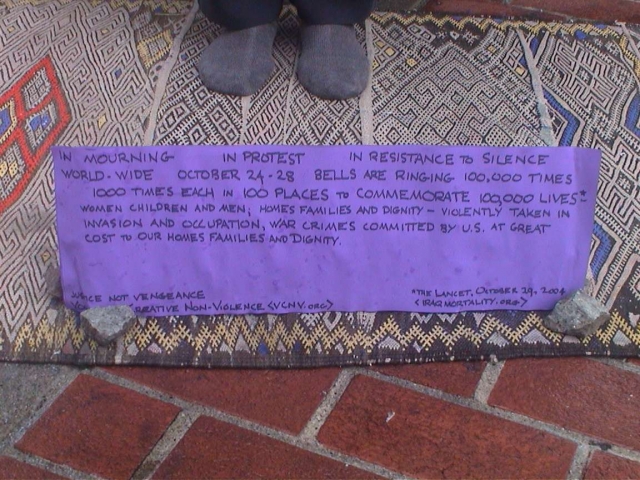 IN MOURNING IN PROTEST IN RESISTANCE TO SILENCE
WORLD-WIDE OCTOBER 24-28 BELLS ARE RINGING 100,000 TIMES
1000 TIMES EACH IN 100 PLACES TO COMMEMORATE 100,000 LIVES*
WOMEN CHILDREN AND MEN; HOMES FAMILIES AND DIGNITY - VIOLENTLY TAKEN IN
INVASION AND OCCUPATION, WAR CRIMES COMMITTED BY U.S. AT GREAT
COST TO OUR HOMES FAMILIES AND DIGNITY.
JUSTICE NOT VENGEANCE
CREATIVE NON-VIOLENCE <VCNV.ORG>
*THE LANCET, OCTOBER 29, 2004
<IRAQMORTALITY.ORG>